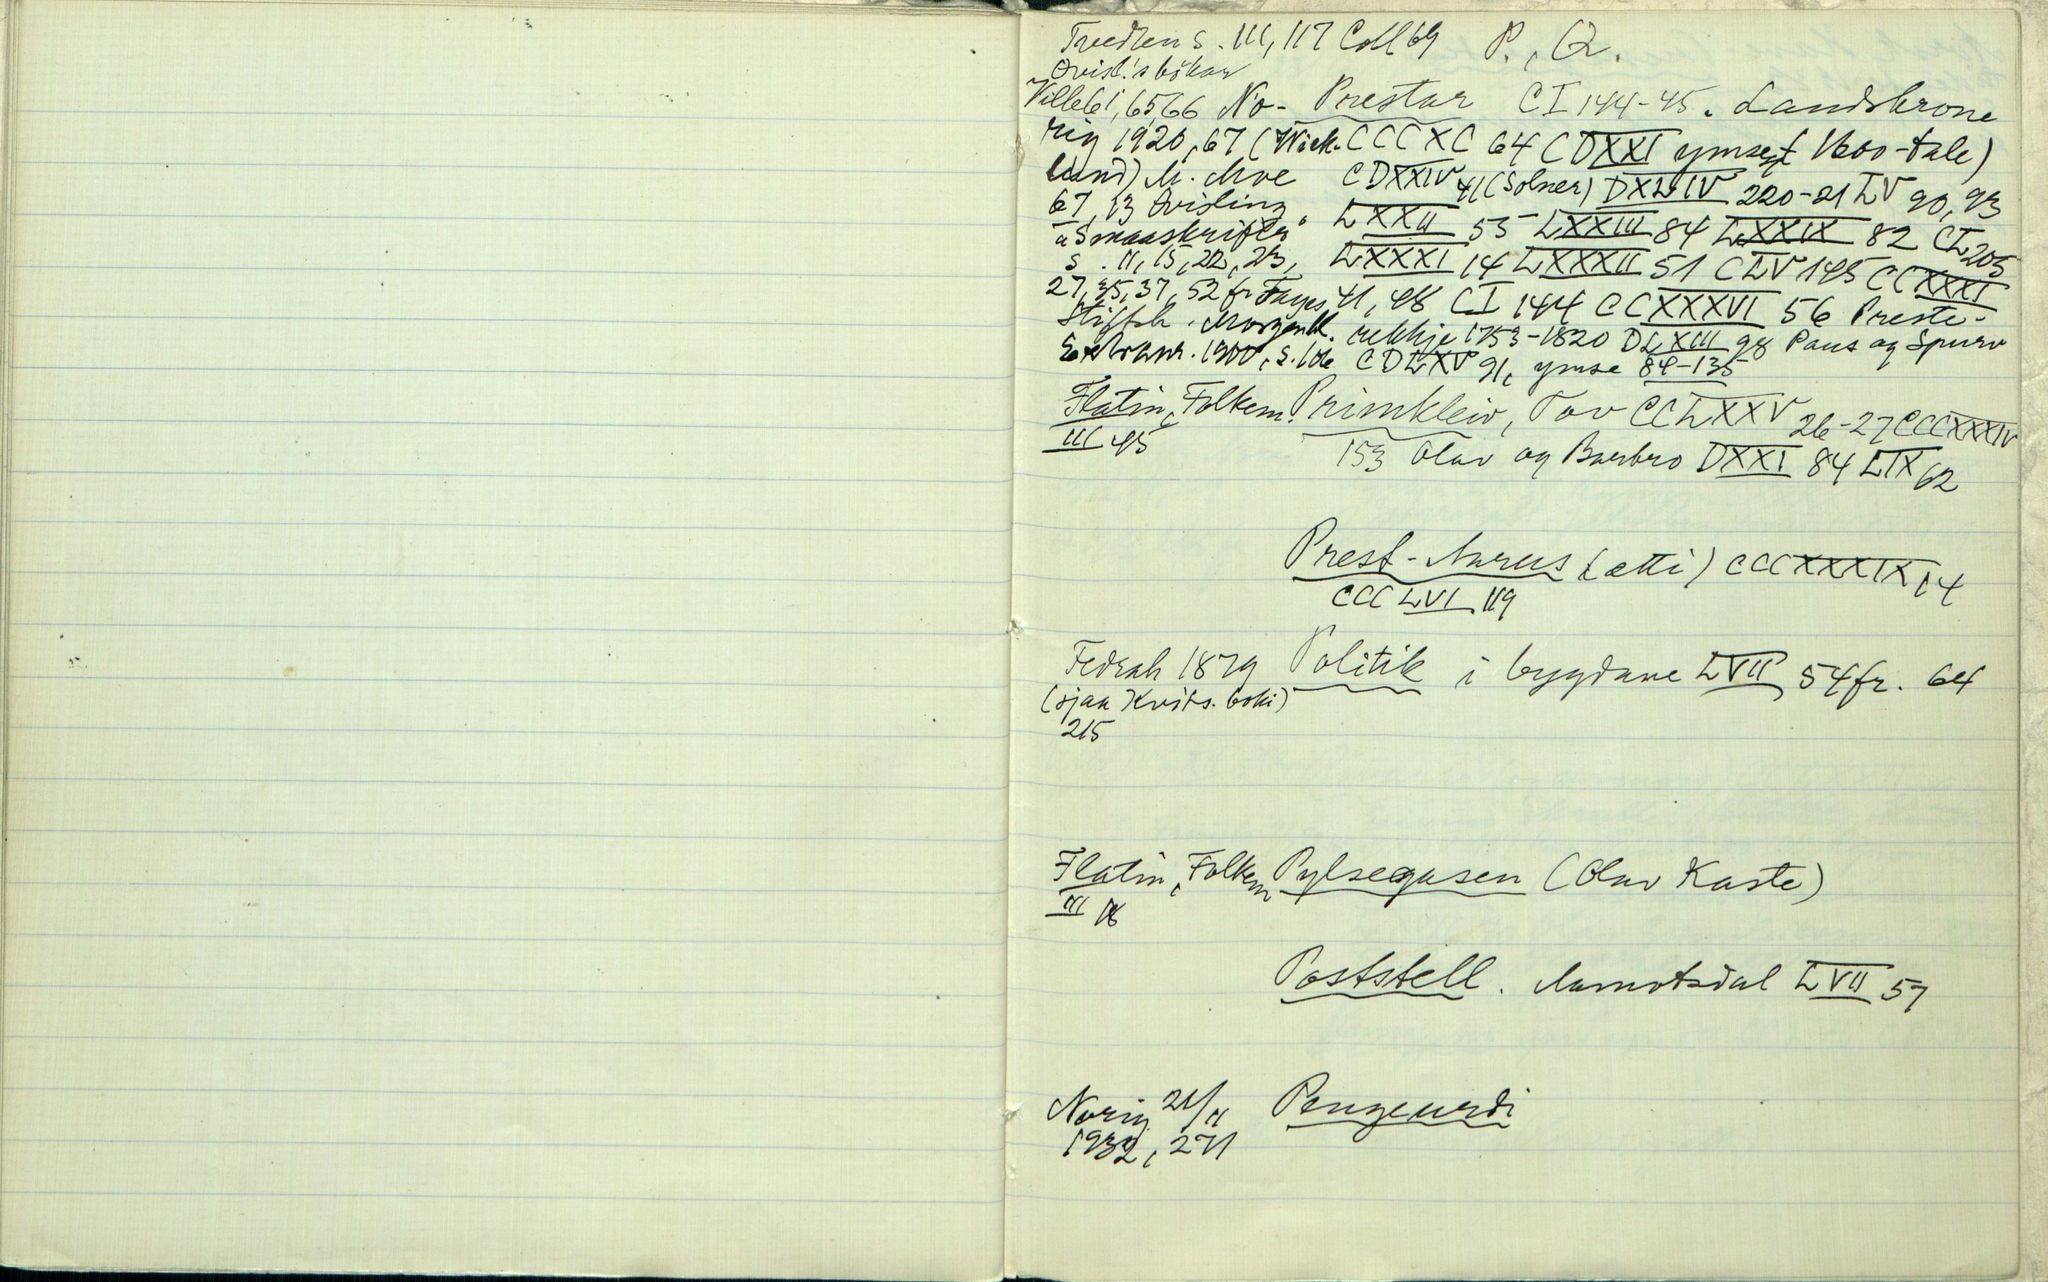 Tvedten s. 111, 117 Coll 69 P., Q.
Qvisl.'s bökar
Ville 61, 65, 66 No- Prestar CI 144-45. Landskrone
rig 1920, 67 (Wick- CCCXC 64 CDXXI ymse 1600-tale)
lund) M. Moe CDXXIV 41 (Solner) DXLIV 220-21 LV 90, 93
67, 13 Qvisling LXXII 55 LXXIII 84 LXXIX 82 CL 205
"Smaaskrifter" LXXXI 14 LXXXII 51 CLV 145 CCXXXI
s. 11, 15, 22, 23, 41, 48 CI 144 CCXXXVI 56 Preste-
27, 35, 37, 52 fr. Fayes
Stiftsh. Morgenbl. rekkje 1753-1820 DLXIII 98 Paus og Spurv
Extranr. 1900, s. CDLXV 91, ymse 84-135
Flatin, Folkem. Primkleiv, Tov CCLXXV 26-27 CCCXXXIV
III 45 153 Olav og Barbro DXXI 84 LIX 62
Prest-Aarus (ætti) CCCXXXIX 14
CCCLVI 119
Fedrah 1879 Politik i bygdane LVII 54 fr. 64
(sjaa Kvits. boki)
215
Flatin, Folkem Pylsegasen (Olav Kaste)
III 18
Poststell. Aamotsdal LVII 57
Norig 21/11 Pengeurdi
1932, 271